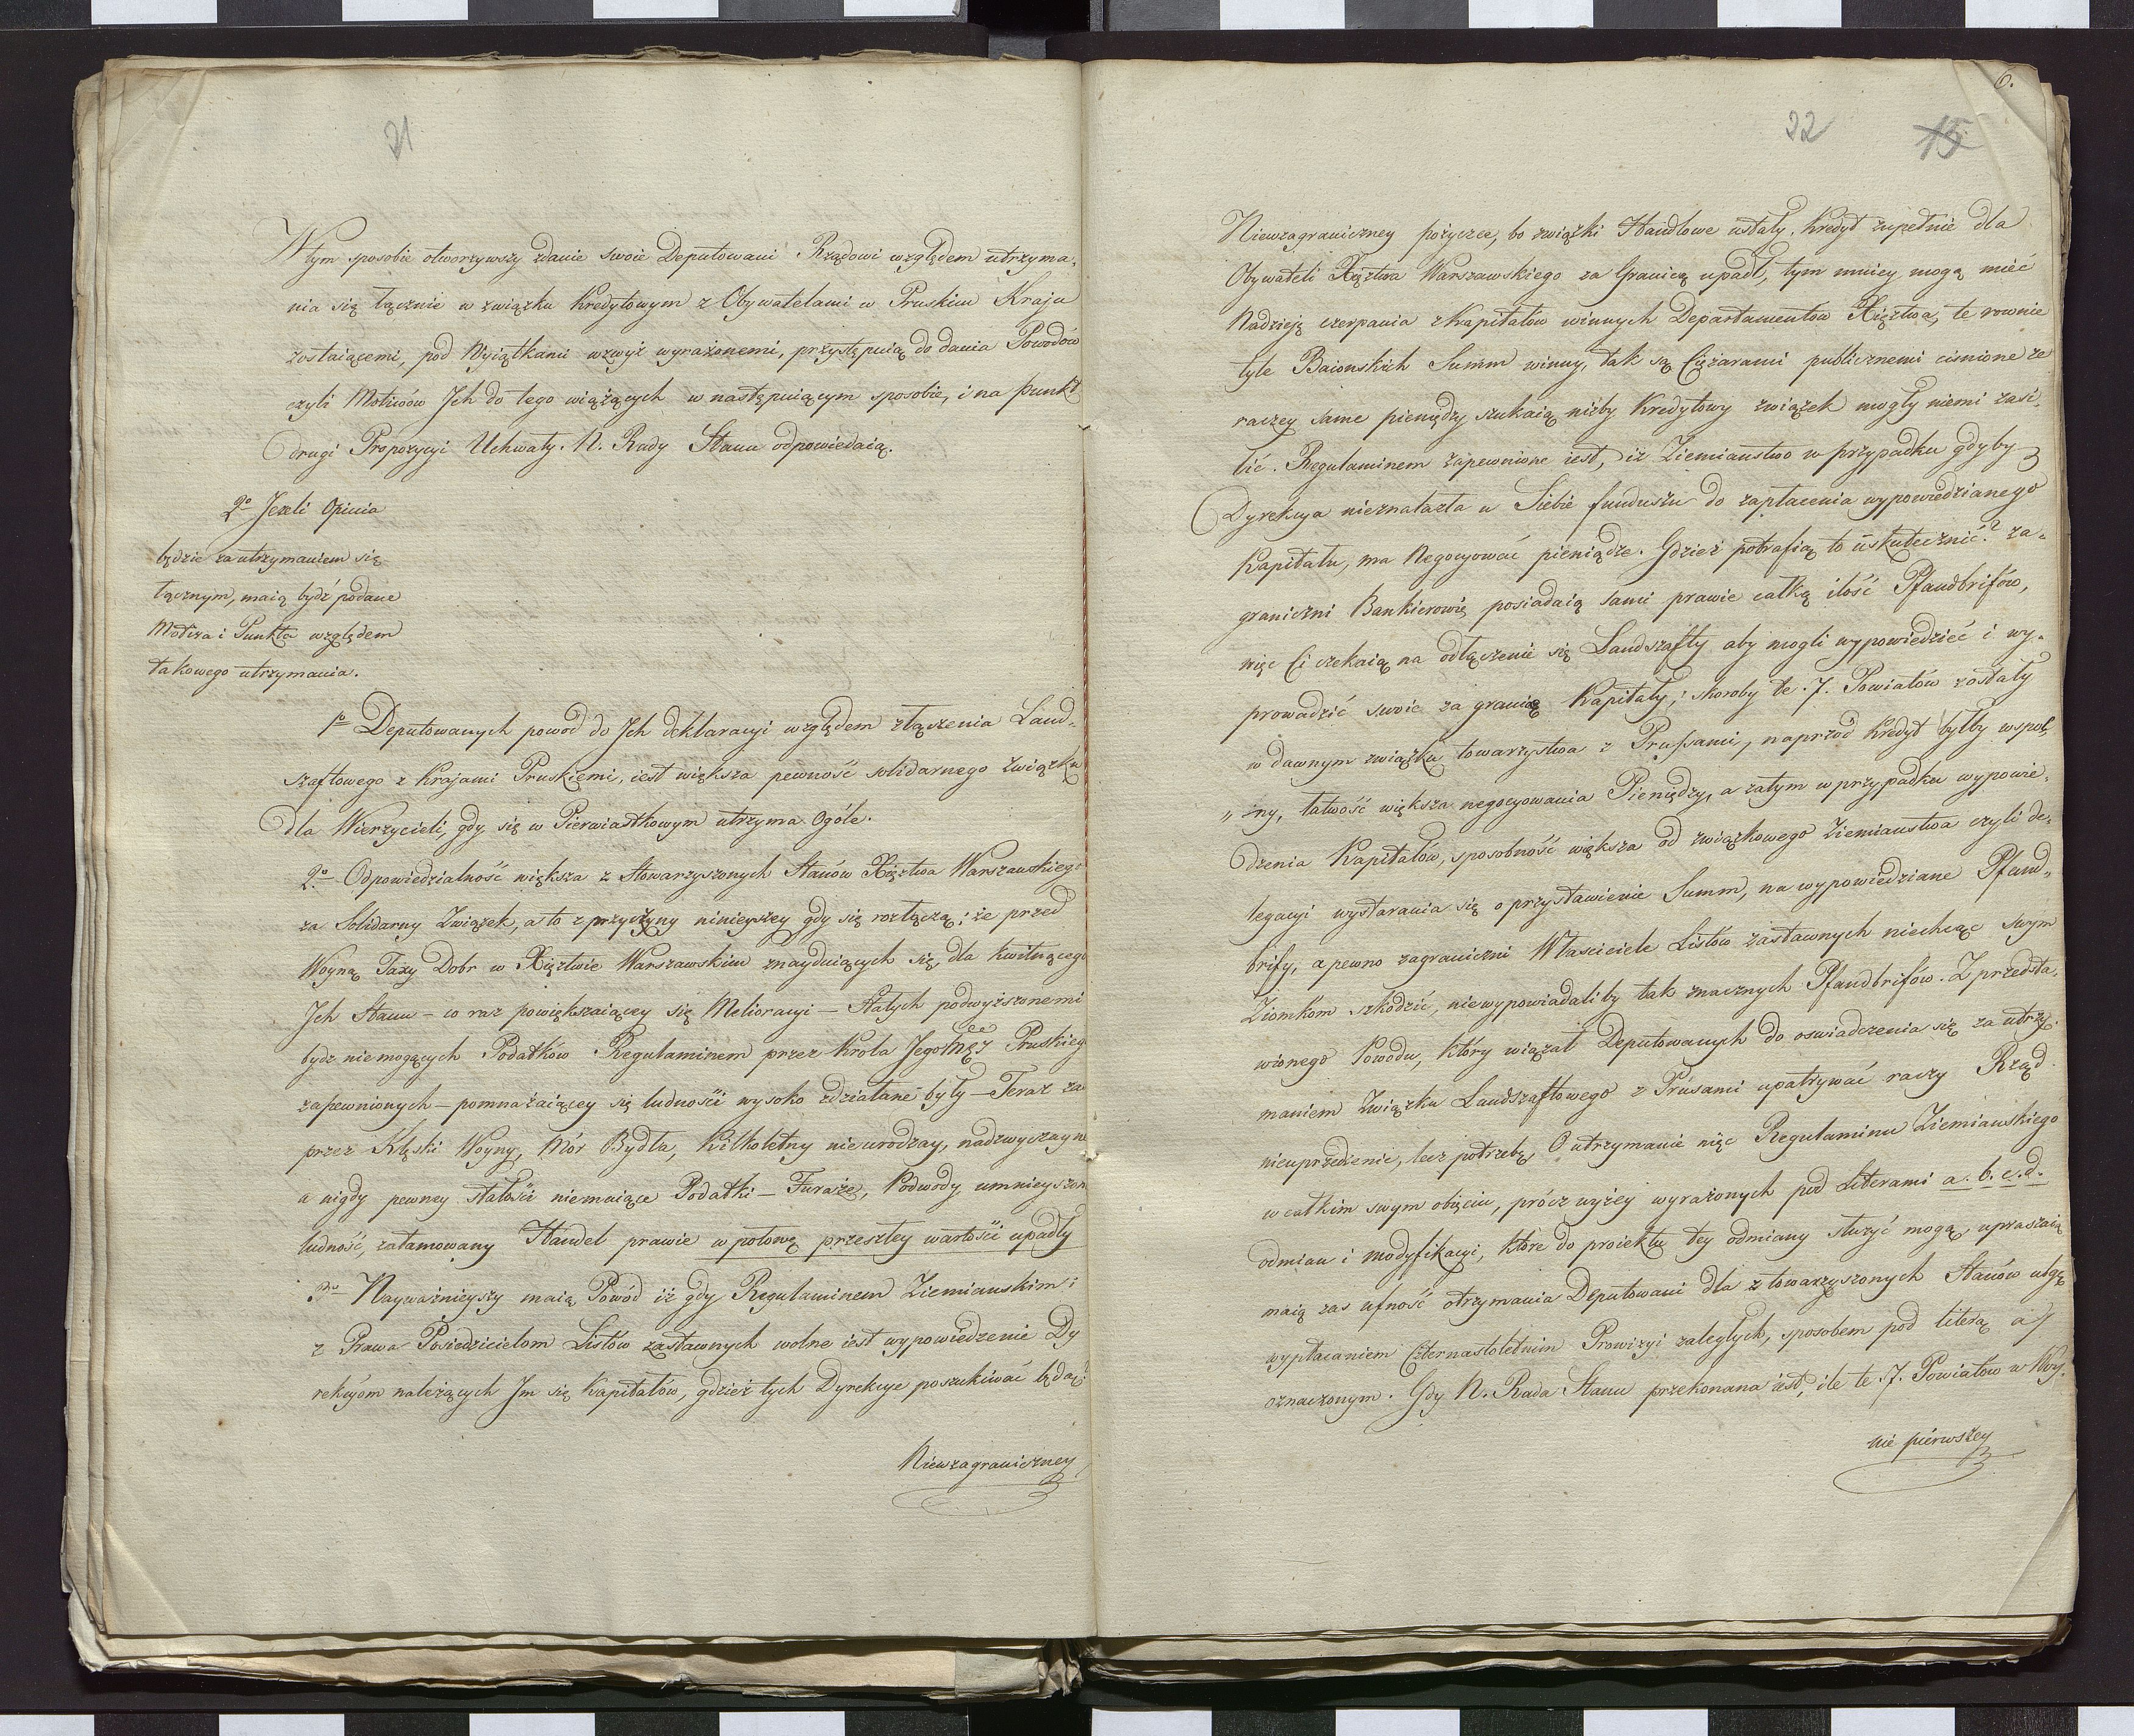 21
W tym sposobie otworzywszy zdanie swoie Deputowani Rządowi względem utrzyma-
nia się łącznie w związku Kredytowym z Obywatelami w Pruskim Kraju
zostaiącemi, pod Wyiątkami wzwyż wyrażonemi, przystępuią do dania Powodów
czyli Motiwów Jch do tego wiążących w następuiącym sposobie, i na punkt
drugi Propozycyi Uchwały N. Rady Stanu odpowiedaią.
2o Jezeli Opinia
będzie za utrzymaniem się
łącznym, maią bydź podane
Motiva i Punkta względem
takowego utrzymania.
1o Deputowanych powod do Jch deklaracyi względem złączenia Land-
szaftowego z Krajami Pruskiemi, iest większa pewność solidarnego Związku
dla Wierzycieli, gdy się w Pierwiastkowym utrzyma Ogóle.
2o Odpowiedzialność większa z Stowarzyszonych Stanów Xięztwa Warszawskiego
za Solidarny Związek, a to z przyczyny ninieyszey gdy się rozłączą; że przed
Woyną Taxy Dobr w Xięztwie Warszawskim znayduiących się, dla kwitnącego
Jch Stanu – co raz powiększaiącey się Melioracyi – Stałych podwyższonemi
bydz niemogących Podatków Regulaminem przez Krola Jego Mci Pruskieg
zapewnionych – pomnażaiącey się ludności wysoko zdziałane były – Teraz zaś
przez Klęski Woyny, Mór Bydła, Kilkoletny nieurodzay, nadzwyczayne
a nigdy pewney stałości niemaiące Podatki – Furaże, Podwody, umnieyszon
ludność, zatamowany Handel prawie w połowę przeszłey wartości upadły
3o Nayważnieyszy maią Powód iż gdy Regulaminem Ziemianskim i
z Prawa Posiedzicielom Listów zastawnych wolne iest wypowiedzenie Dy
rekcyom należących Jm się Kapitałów, gdzież tych Dyrekcye poszukiwać będą?
Niewzagraniczney
6.
22 15
Niewzagraniczney pożyczce, bo związki Handlowe ustały, Kredyt zupełnie dla
Obywateli Xięztwa Warszawskiego za Granicą upadł, tym mniey mogą mieć
Nadzieję czerpania z Kapitałów winnych Departamentów Xięztwa, te rownie
tyle Baionskich Summ winny, tak są Ciężarami publicznemi cisnione że
raczey same pieniędzy szukaią niżby Kredytowy związek mogły niemi zasi-
lić. Regulaminem zapewnione iest, iż Ziemianstwo w przypadku gdyby
Dyrekcya nieznalazła u Siebie funduszu do zapłacenia wypowiedzianego
Kapitału, ma Negocyować pieniądze. Gdzież potrafią to uskutecznić? za-
graniczni Bankierowie posiadaią sami prawie całką ilość Pfandbrifów,
więc Ci czekaią na odłączenie się Landszafty aby mogli wypowiedzieć i wy-
prowadzić swoie za granicę Kapitały; skoroby te 7. Powiatów zostały
w dawnym związku towarzystwa z Prussami, naprzód Kredyt byłby wspol,
„ ny, łatwość większa negocyowania Pieniędzy, a zatym w przypadku wypowie-
dzenia Kapitałów, sposobność większa od związkowego Ziemianstwa czyli de-
legacyi wystarania się o przystawienie Summ, na wypowiedziane Pfand„
brify, a pewno zagraniczni Właściciele Listów zastawnych niechcąc swym
Ziomkom szkodzić, niewypowiadaliby tak znacznych Pfandbrifów. Z przedsta-
wionego Powodu, który wiązał Deputowanych do oswiadczenia się za utrzy-
maniem Związku Landszaftowego z Prusami upatrywać raczy Rząd
nieuprzedzenie, lecz potrzebę. O utrzymanie więc Regulaminu Ziemianskiego
w całkim swym obięciu, prócz wyżey wyrażonych pod Literami a. b. c. d.
odmian i modyfikacyi, które do proiektu tey odmiany służyć mogą, upraszaią
maią zas ufność otrzymania Deputowani dla z towarzyszonych Stanów ulgę
wypłacaniem Czternastoletnim Prowizyi zaległych, sposobem pod literą a)
oznaczonym. Gdy N. Rada Stanu przekonana iest, ile te 7. Powiatów w Woy-
nie pierwszey